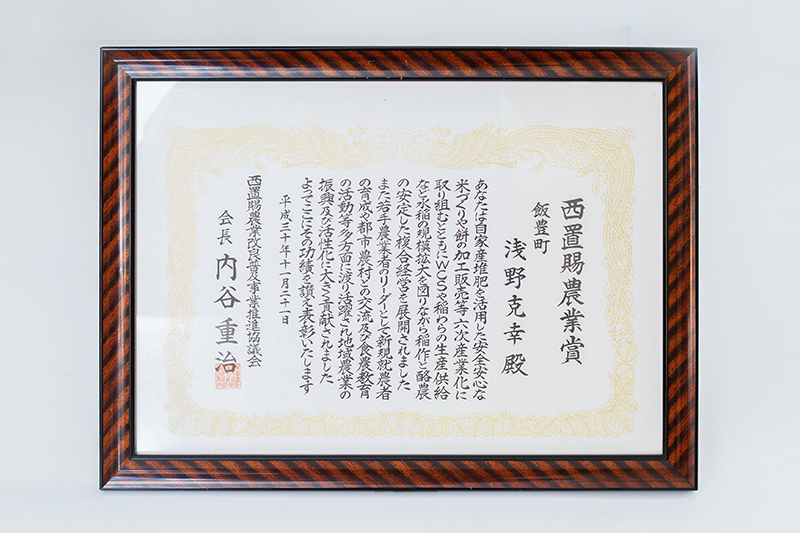 西置賜農業賞
飯豊町
浅野克幸殿
あなたは自家産堆肥を活用した安全安心な
米づくりや餅の加工販売等六次産業化に
取り組むとともにWCSや稲わらの生産供給
など水稲の規模拡大を図りながら稲作と酪農
の安定した複合経営を展開されました
また若手農業者のリーダーとして新規就農者
の育成や都市農村との交流及び食農教育
の活動等多方面に渡り活躍され地域農業の
振興及び活性化に大きく貢献されました
よってここにその功績を讃え表彰いたします
平成三十年十一月二十一日
西置賜農業改良普及事業推進協議会
会長 内谷重治